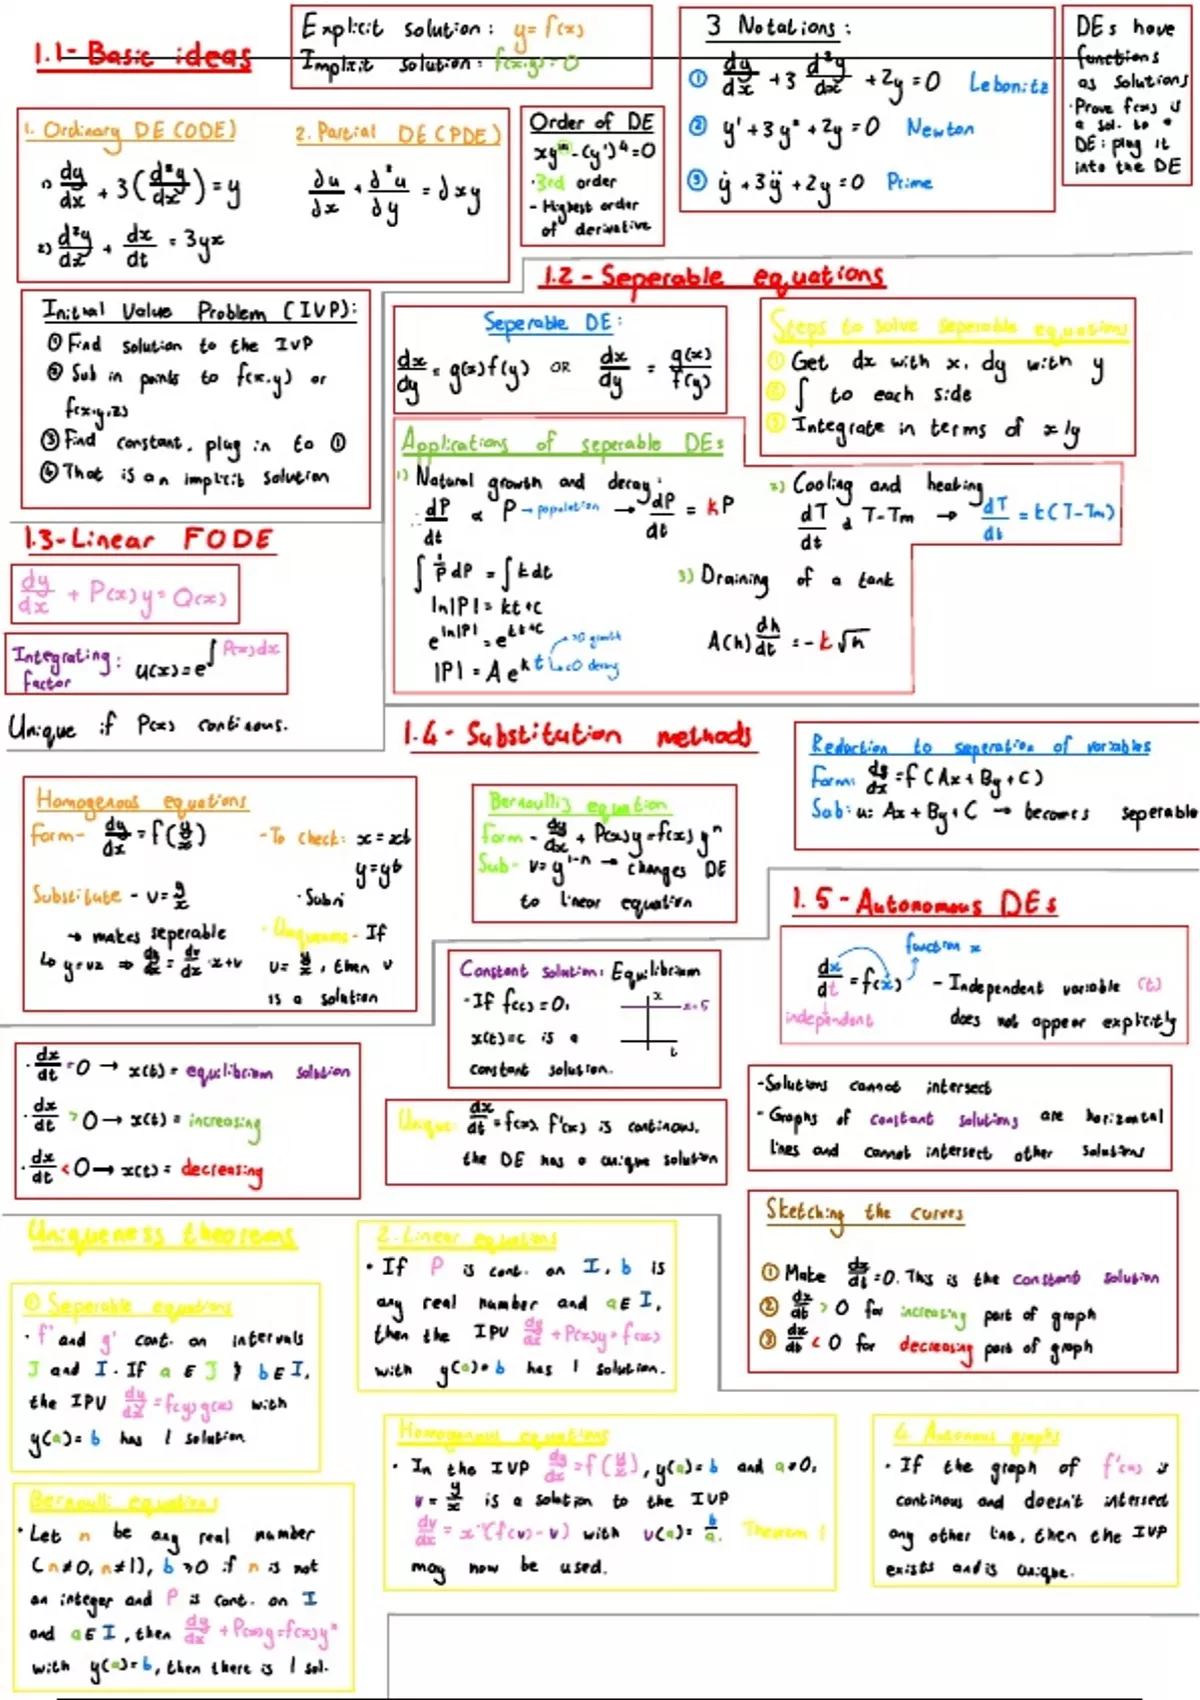 1.1- Basic ideas
Explicit solution: y= f(x)
Implicit solution: f(x,y)=0
3 Notations:
① dy/dx +3 d²y/dx +2y=0 Lebonitz
② y' +3y" +2y =0 Newton
③ ẏ +3ÿ +2y=0 Prime
DEs have
functions
as solutions
·Prove f(x) is
a sol. to a
DE: plug it
into the DE
1. Ordinary DE(ODE)
1) dy/dx + 3(d²y/dx)=y
2) d²y/dx + dx/dt = 3yx
2. Partial DE(PDE)
∂u/∂x + ∂²u/∂y = ∂xy
Order of DE
xy''' -(y')⁴=0
·3rd order
- Highest order
of derivative
Initial Value Problem (IVP):
① Find solution to the IVP
② Sub in points to f(x,y) or
f(x,y,z)
③ Find constant, plug in to ①
④ That is an implicit solution
1.2 - Seperable equations
Seperable DE:
dx/dy = g(x)f(y) OR dx/dy = g(x)/f(y)
Steps to solve seperable equations
① Get dx with x, dy with y
② ∫ to each side
③ Integrate in terms of x/y
Applications of seperable DEs
1) Natural growth and decay:
dP/dt α P → population → dP/dt = kP
∫ 1/P dP = ∫ k dt
ln|P| = kt+c
e^ln|P| = e^kt+c
|P| = A e^kt >0 growth
<0 decay
2) Cooling and heating
dT/dt α T-Tm → dT/dt = k(T-Tm)
3) Draining of a tank
A(h) dh/dt = -k√h
1.3-Linear FODE
dy/dx + P(x)y= Q(x)
Integrating: u(x)=e^∫P(x)dx
factor
Unique if P(x) continous.
1.4- Substitution methods
Reduction to seperation of variables
Form: dy/dx =f(Ax+By+C)
Sub: u= Ax+By+C → becomes seperable
Homogenous equations
Form- dy/dx = f(y/x)
Substitute - v= y/x
→ makes seperable
↳ y=vx ⇒ dy/dx = dv/dx ·x+v
-To check: x = xt
y=yt
· Subn
- If
v= y/x, then v
is a solution
Bernoulli's equation
Form - dy/dx + P(x)y=f(x)yⁿ
Sub- v= y^1-n → changes DE
to linear equation
1.5-Autonomous DEs
function x
dx/dt = f(x) - Independent variable (t)
independent does not appear explicitly
Constant solution: Equilibrium
·If f(c)=0,
x(t)=c is a
constant solution.
x
x=5
t
· dx/dt =0 → x(t)= equilibrium solution
· dx/dt >0 → x(t)= increasing
· dx/dt <0 → x(t)= decreasing
Unique: dx/dt =f(x), f'(x) is continous,
the DE has a unique solution
-Solutions cannot intersect
- Graphs of constant solutions are horizontal
lines and cannot intersect other solutions
Sketching the curves
① Make dx/dt =0. This is the constant solution
② dx/dt >0 for increasing part of graph
③ dx/dt <0 for decreasing part of graph
Uniqueness theorems
① Seperable equations
· f' and g' cont. on intervals
J and I. If a ∈ J & b∈I,
the IPV dy/dx =f(y)g(x) with
y(a)= b has 1 solution
2. Linear equations
· If P is cont. on I, b is
any real number and a∈I,
then the IPV dy/dx +P(x)y=f(x)
with y(a)=b has 1 solution.
Bernoulli equations
· Let n be any real number
(n≠0, n≠1), b >0 if n is not
an integer and P is cont. on I
and a∈I, then dy/dx + P(x)y=f(x)yⁿ
with y(a)=b, then there is 1 sol.
Homogenous equations
· In the IVP dy/dx =f(y/x), y(a)=b and a≠0,
v= y/x is a solution to the IVP
dv/dx = x⁻¹(f(v)-v) with v(a)= b/a. Theorem 1
may now be used.
4. Autonous graphs
· If the graph of f'(x) is
continous and doesn't intersect
any other line, then the IVP
exists and is unique.